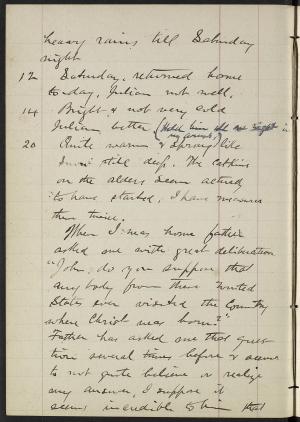 heavy rains till Saturday
night
12 Saturday, returned home
to-day, Julian not well,
14 Bright & not very cold
Julian better (Held him all night in
my arms)
20 Quite warm & spring like
Snow still deep. The catkins
on the alders seem actually
to have started, I have measured
them twice.
When I was home father
asked me with great deliberation
"John, do you suppose that
any body from these United
States ever visited the Country
where Christ was born?"
Father has asked me that ques
tion several times before & seems
to not quite believe or realize
my answer, I suppose it
seems incredible to him that